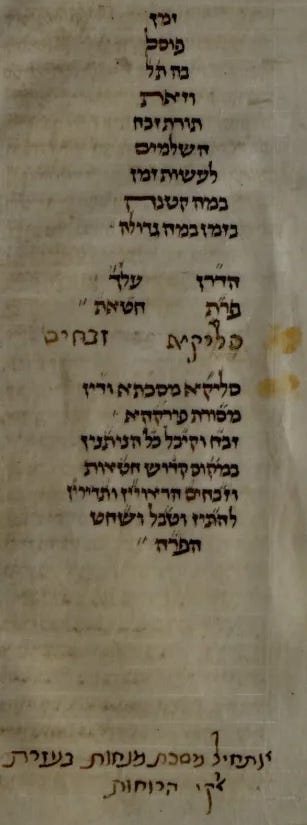 זמן
פוסל
בה תל
וזאת
תורת זבח
השלמים
לעשות זמן
במה קטנה
כזמן במה גדולה
הדרן עלך
פרת חטאת
סליקא זבחים
סליקא מסכתא ודין
מסורת פירקהא
זבח וקיבל כל הניתנין
במקום קדוש חטאות
וזבחים הראויין ותדירין
להתיז וטבל ושחט
הפרה
נתחיל מסכת מנחות בעזרת
אקי הרוחות